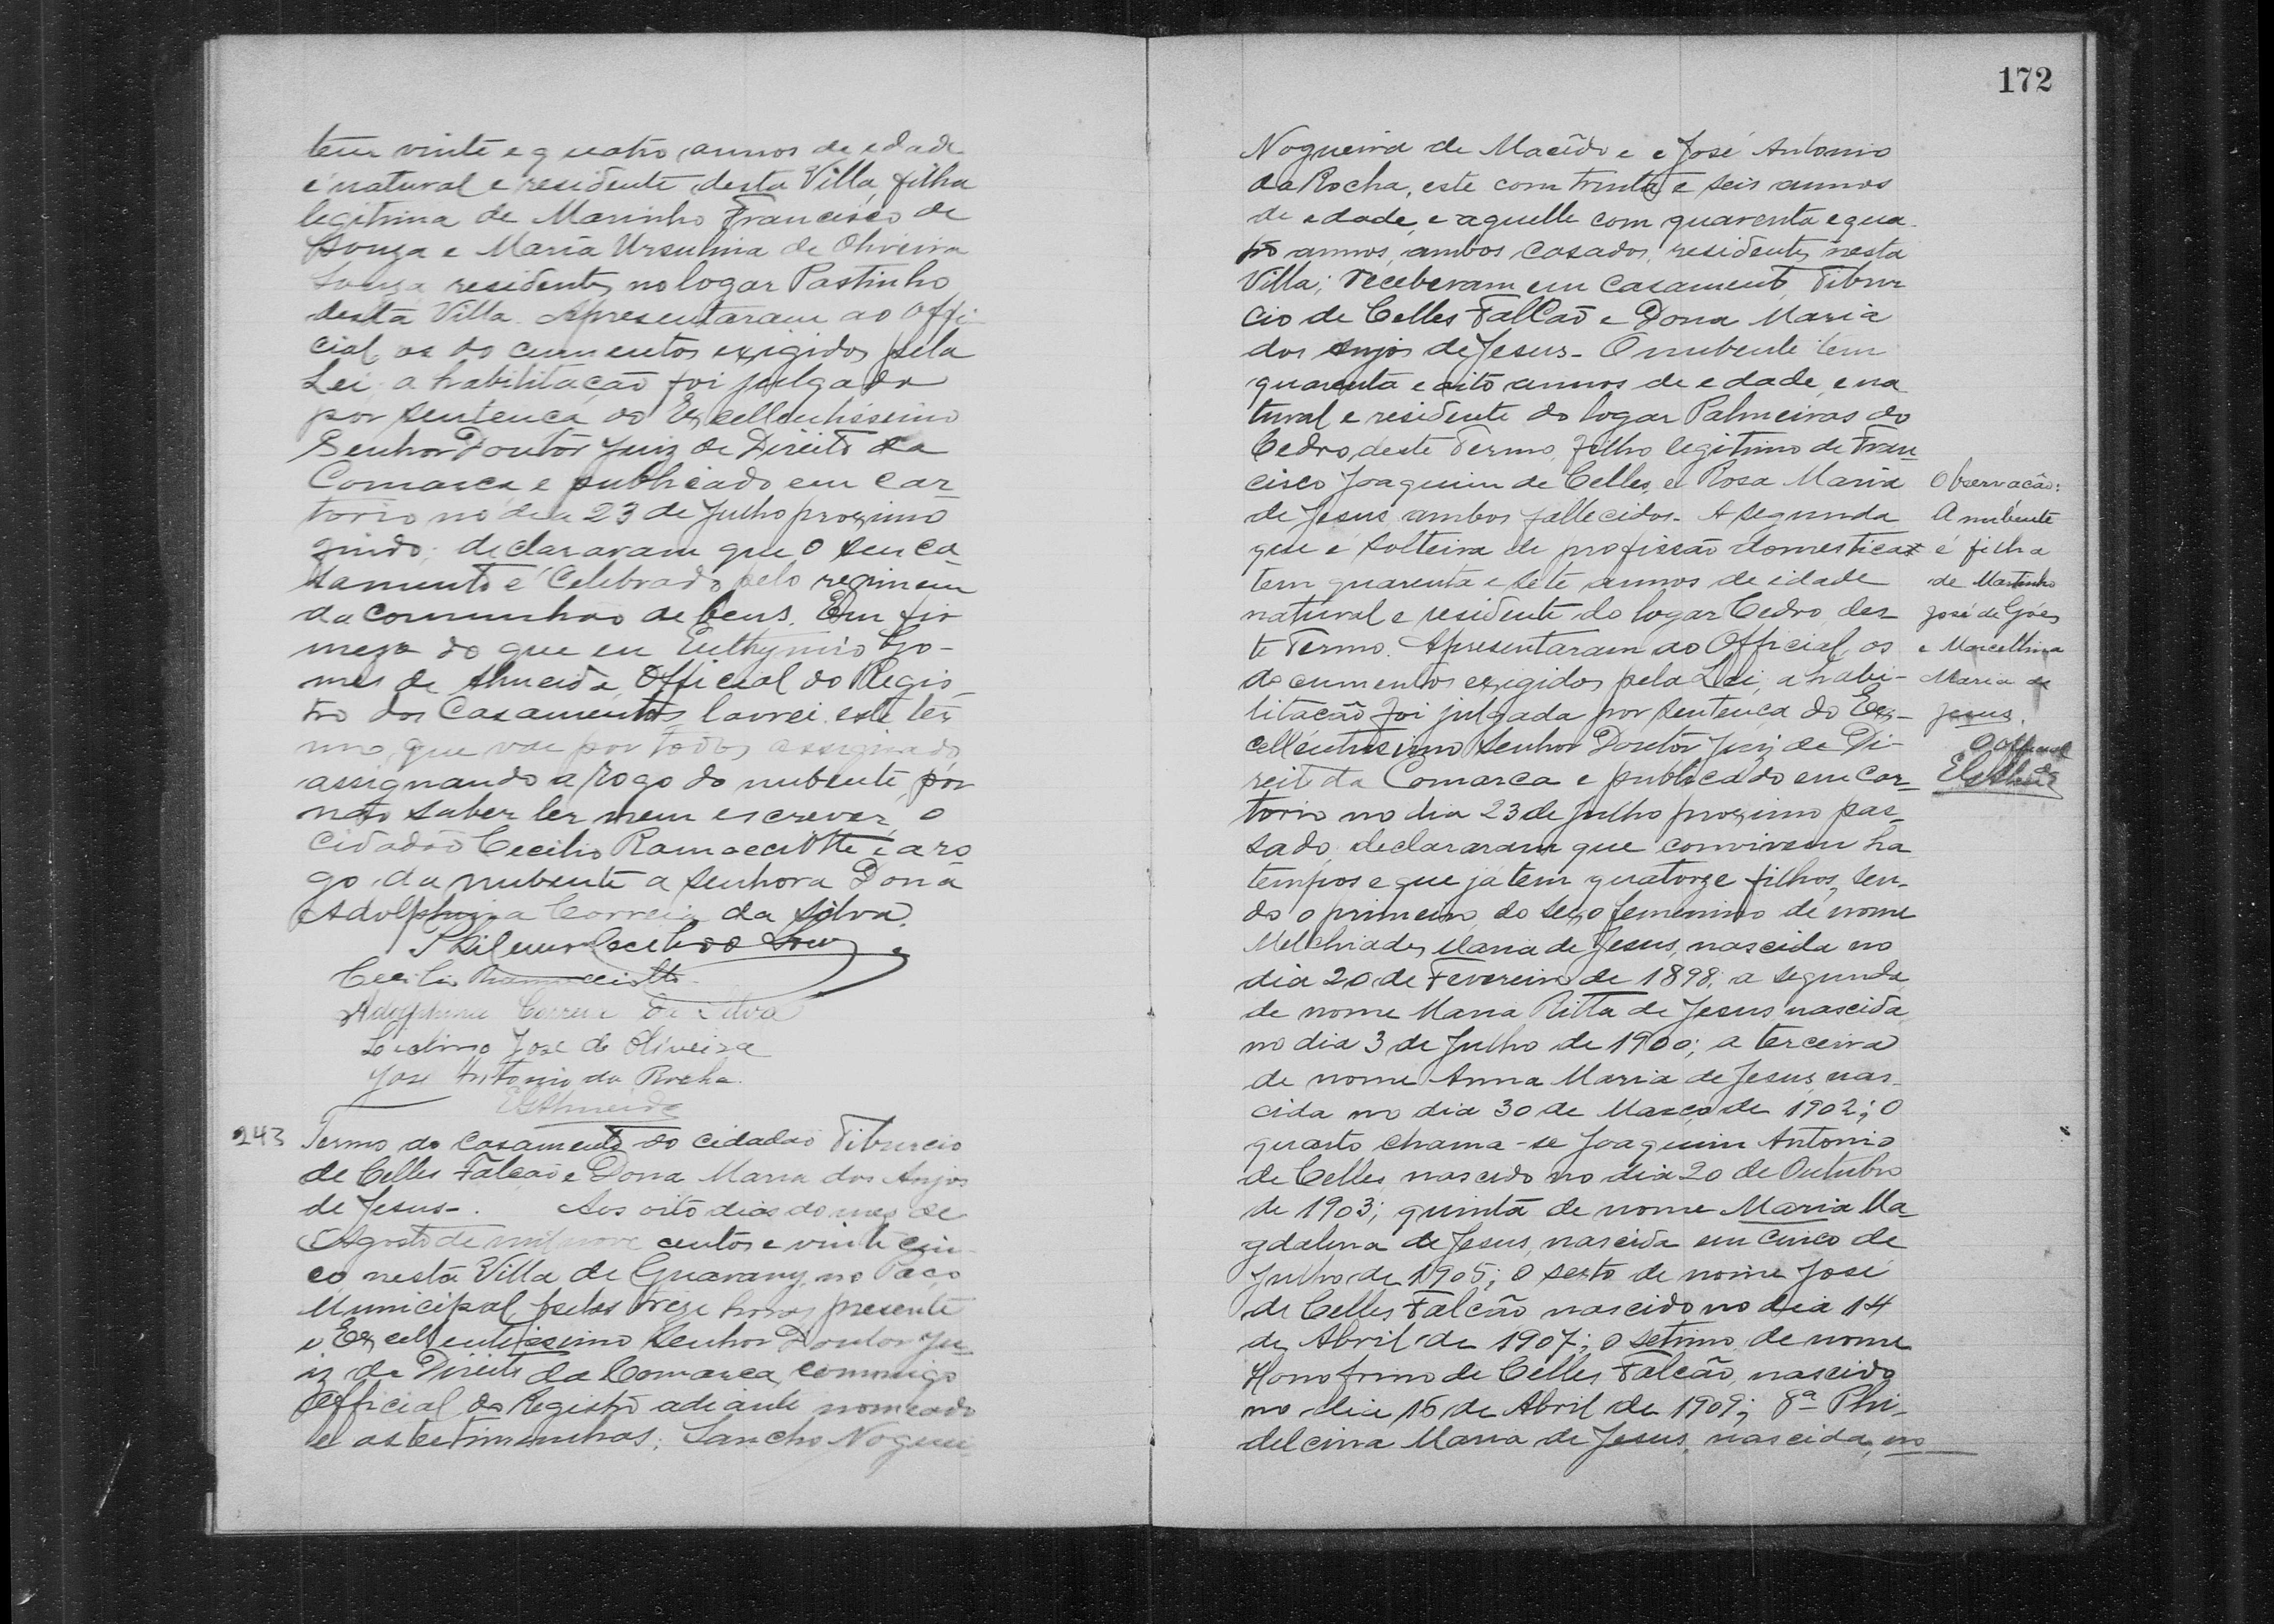 tem vinte e quatro annos de edade
é natural e residente desta Villa, filha
legitima de Marinho Francisco de
Souza e Maria Ursulina de Oliveira
Souza residentes no logar Pastinho
desta Villa. Apresentaram ao Offi-
cial os documentos exigidos pela
Lei; a habilitação foi julgada
por sentença do Excellentissimo
Senhor Doutor Juiz de Direito da
Comarca e publicado em car-
torio no dia 23 de Julho proximo
findo; declararam que o seu ca
samento é celebrado pelo regimem
da communhão de bens. Em fir
meza do que eu Euthymio Go-
mes de Almeida, Official do Regis-
tro dos Casamentos, lavrei este ter
mo, que vae por todos assignado
assignando a rogo do nubente, por
não saber ler nem escrever, o
cidadão Cecilio Ramacciotte e a ro
go da nubente a senhora Dona
Adolphina Correia da Silva.
Cecilio Ramacciotte
Adolphina Correia da Silva
José de Oliveira
José Antonio da Rocha.
EGAlmeida
243 Termo do casamento do cidadão Tiburcio
de Celles Falcão e Dona Maria dos Anjos
de Jesus-. Aos oito dias do mes de
Agosto de mil nove centos e vinte cin-
co nesta Villa de Guarany, no Paço
Municipal, pelas treze horas, presente
o Excellentissimo Senhor Doutor Ju-
iz de Direito da Comarca, commigo
Official do Registro adiante nomeado
e as testimunhas; Sancho Noguei
172
Nogueira de Macêdo e e José Antonio
da Rocha, este com trinta e seis annos
de edade, e aquelle com quarenta e qua-
tro annos, ambos casados, residentes nesta
Villa; receberam em casamento Tibur
cio de Celles Falcão e Dona Maria
dos Anjos de Jesus- O nubente tem
quarenta e oito annos de edade, e na
tural e residente do logar Palmeiras do
Cedro, deste Termo, filho legitimo de Fran-
cisco Joaquim de Celles, e Rosa Maria
de Jesus ambos fallecidos- A segunda
que é solteira de profissão domestica
tem quarenta e sete annos de idade
natural e residente do logar Cedro, des-
te Termo. Apresentaram ao Official, os
documentos exigidos pela Lei, a habi-
litacão foi julgada por sentença do Ex-
cellentissimo Senhor Doutor Juiz de Di-
reito da Comarca e publicado em car-
torio no dia 23 de Julho proximo pas-
sado; declararam que convivem ha
tempos e que ja tem quatorze filhos, sen-
do o primeiro do sexo femenino de nome
Melchiades Maria de Jesus, nascida no
dia 20 de Fevereiro de 1898; a segunda
de nome Maria Ritta de Jesus nascida
no dia 3 de Julho de 1900; a terceira
de nome Anna Maria de Jesus, nas-
cida no dia 30 de Março de 1902; O
quarto chama-se Joaquim Antonio
de Celles nascido no dia 20 de Outubro
de 1903; quinta de nome Maria Ma-
gdalena de Jesus, nascida em cinco de
Julho de 1905; O sexto de nome José
de Celles Falcão nascido no dia 14
de Abril de 1907; O setimo de nome
Honofrino de Celles Falcão, nascido
no dia 16 de Abril de 1909; 8ª Phi-
delcina Maria de Jesus, nascida, no
Observacão:
A nubente
é filha
de Martinho
José de Góes
e Marcellina
Maria de
Jesus.
O official
EGAlmeida